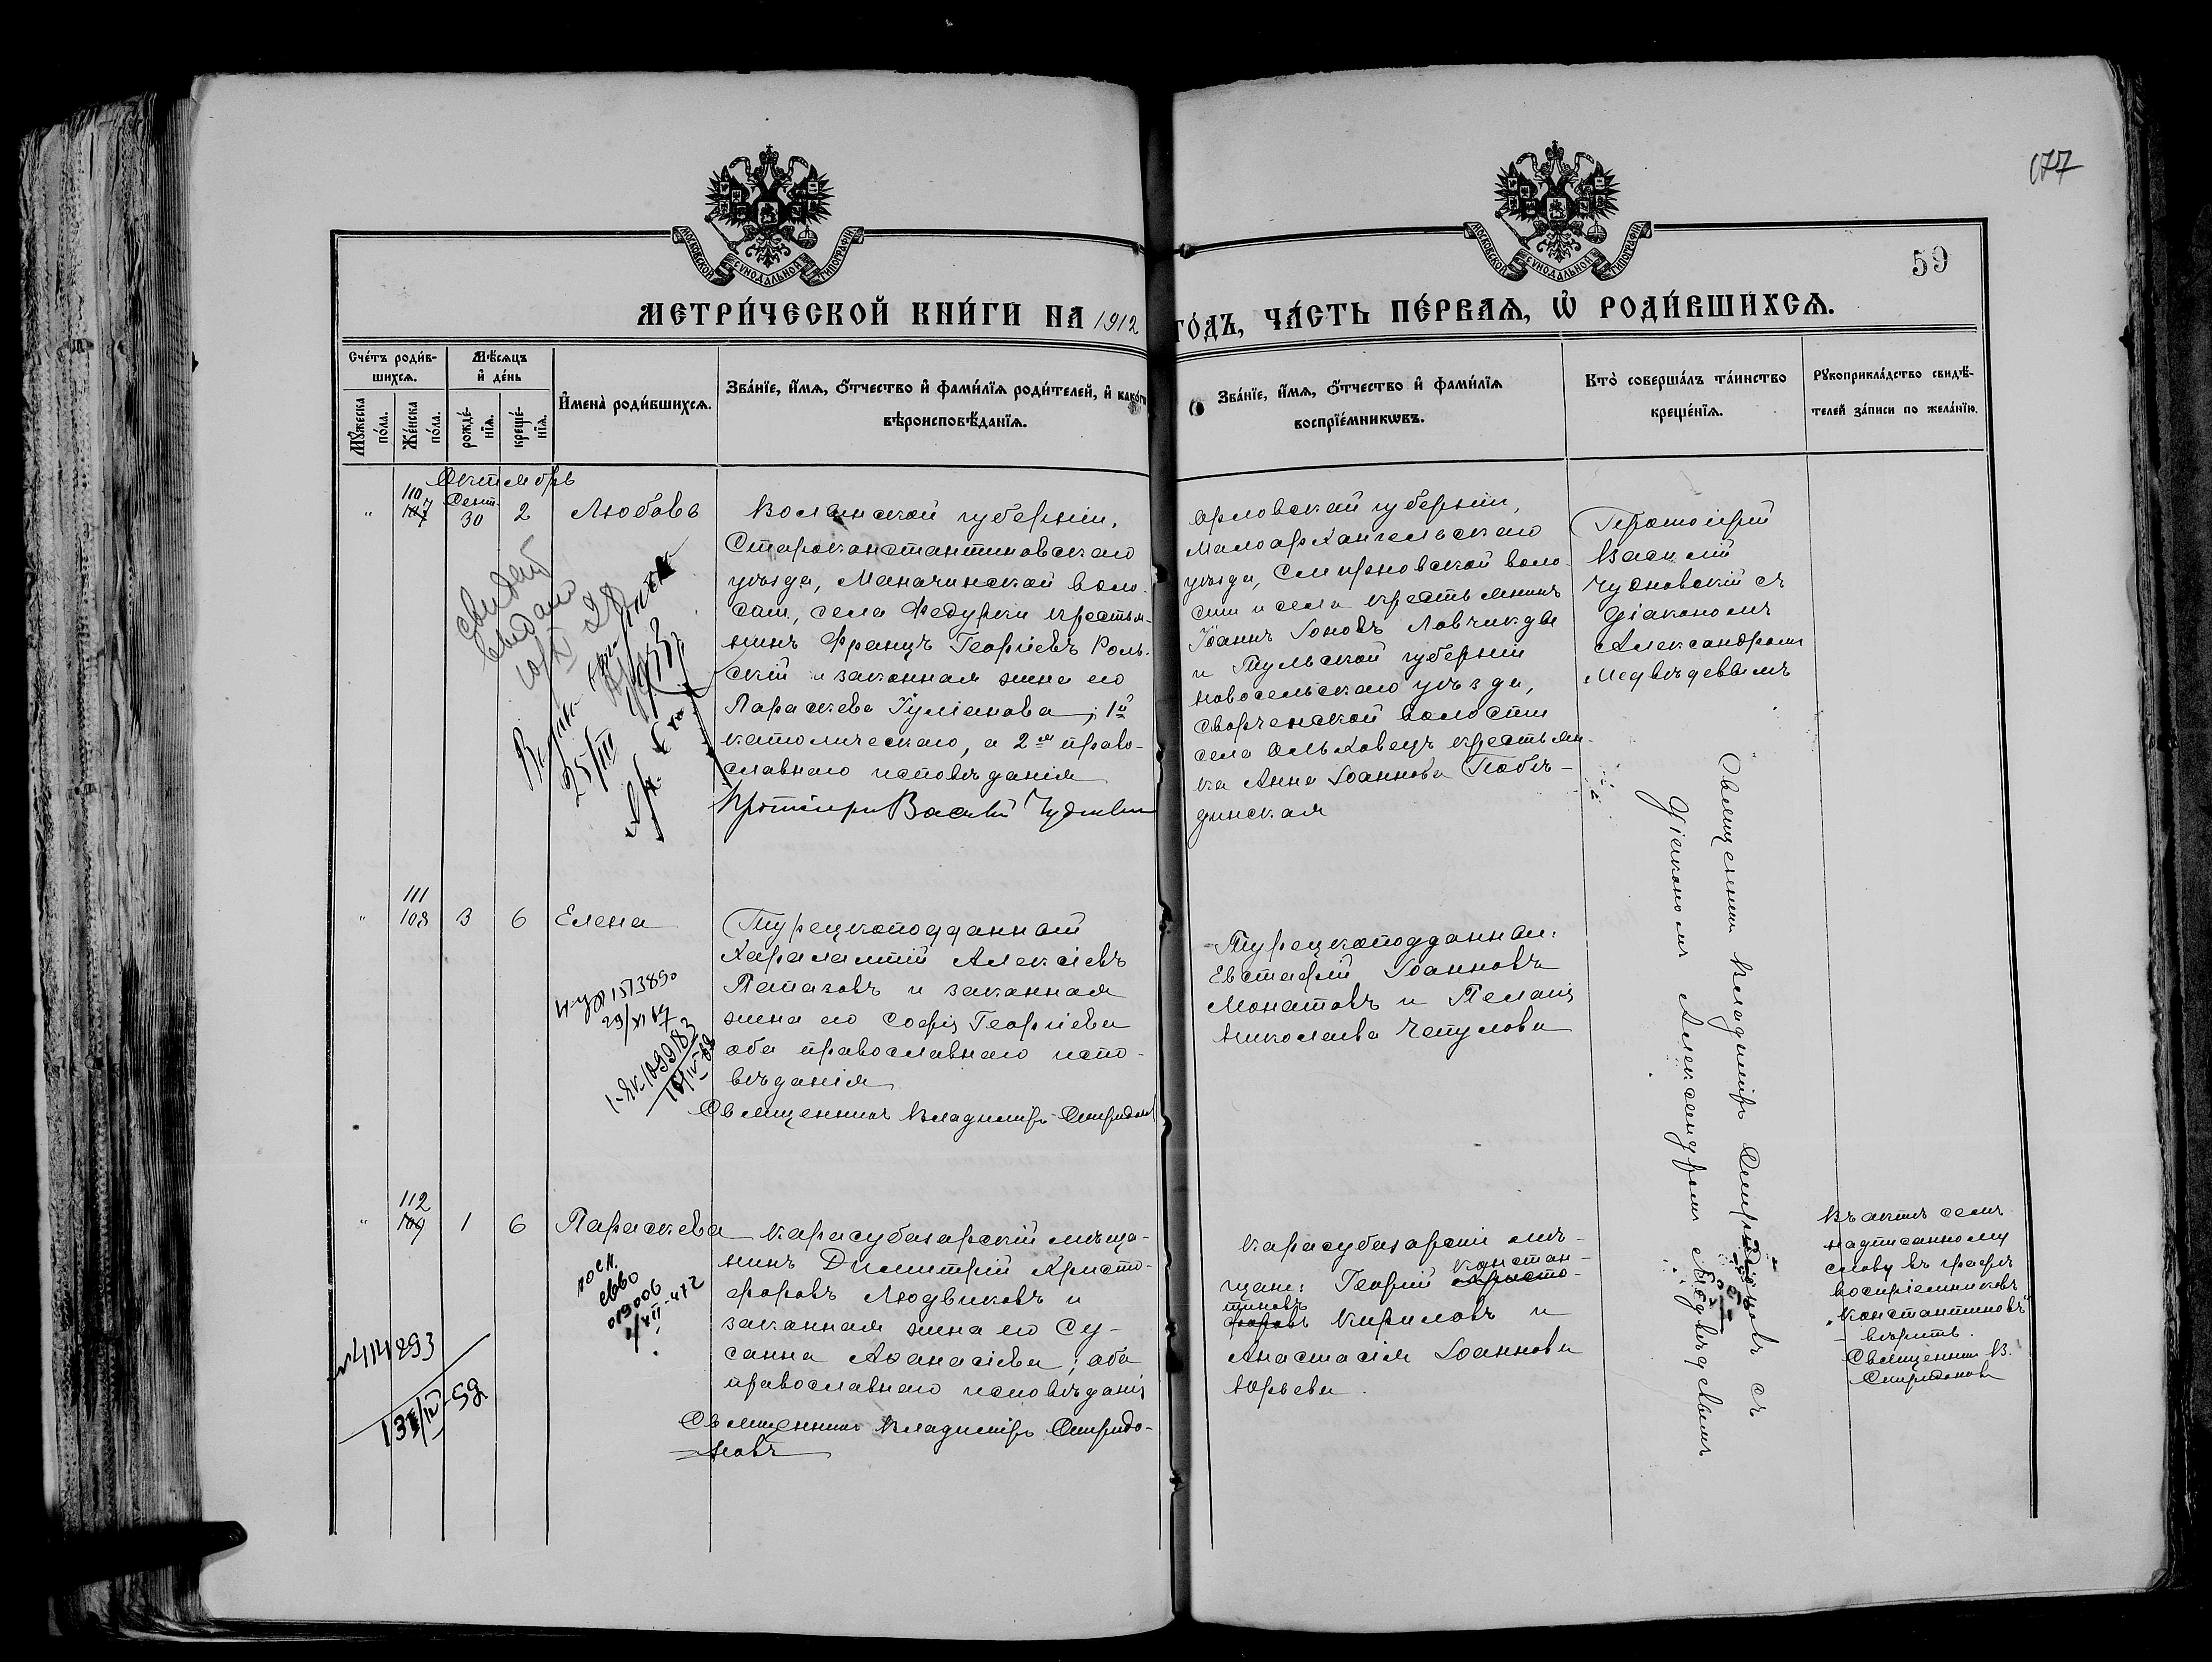 177
59
МОСКОВСКОЙ СѴНОДАЛЬНОЙ ТИПОГРАФІИ
МОСКОВСКОЙ СѴНОДАЛЬНОЙ ТИПОГРАФІИ
МЕТРИ́ЧЕСКОЙ КНИ́ГИ НА 1912 ГО́ДЪ, ЧА́СТЬ ПЕ́РВАѦ, Ѽ РОДИ́ВШИХСѦ.
Сче́тъ роди́в-
шихсѧ.
Мꙋ́жеска
по́ла.
Же́нска
по́ла.
Мѣ́сѧцъ
и҆ де́нь
рожде́-
нїѧ.
креще́-
нїѧ.
И҆мена̀ роди́вшихсѧ.
Зва́нїе, и҆́мѧ, ѻ҆́тчество и҆ фами́лїѧ роди́телей, и҆ како́гѡ
вѣроисповѣ́данїѧ.
Зва́нїе, и҆́мѧ, ѻ҆́тчество и҆ фами́лїѧ
воспрїе́мникѡвъ.
Кто̀ соверша́лъ та́инство
креще́нїѧ.
Рꙋкоприкла́дство свидѣ́-
телей за́писи по жела́нїю.
Октябрь
"
110
107
Сент.
30
2
Любовь
Волынской губерніи,
Староконстантиновскаго
уѣзда, Маначинской воло-
сти, села Федурки крестья-
нинъ Францъ Георгіевъ Роль-
скій и законная жена его
Параскева Іуліанова; 1й
католическаго, а 2я право-
славнаго исповѣданія
Протоіерей Василій Чудновскій
Орловской губерніи,
Малоархангельскаго
уѣзда, Смирновской воло-
сти и села крестьянинъ
Іоаннъ Іоновъ
и Тульской губерніи
Новосельскаго уѣзда,
волости
села Ольховецъ крестьян-
ка Анна Іоаннова Побѣ-
динская
Протоіерей
Василій
Чудновскій съ
діакономъ
Александромъ
Медвѣдевымъ
25/III
"
111
108
3
6
Елена
1513890
29/XI 67
1099183
Турецкоподданный
Харалампій Алексіевъ
Папазовъ и законная
жена его Софія Георгіева
оба православнаго испо-
вѣданія
Священникъ Владиміръ Спиридоновъ
Турецкоподданные:
Евстафій Іоанновъ
Монатовъ и Пелагія
Николаева Чепулова
Священникъ Владиміръ Спиридоновъ съ
діакономъ Александромъ Медвѣдевымъ
"
112
109
1
6
Параскева
019006
№414293
13/IV-59
Карасубазарскій мѣща-
нинъ Димитрій Христо-
форовъ Людвиковъ и
законная жена его Су-
санна Аѳанасіева; оба
православнаго исповѣданія
Священникъ Владиміръ Спиридо-
новъ
Карасубазарскіе мѣ-
щане: Георгій Христо- Констан-
форовъ тиновъ Кириловъ и
Анастасія Іоаннова
Юрьева.
Въ актѣ семъ
надписанному
слову въ графѣ
воспріемниковъ
"Константиновъ"
вѣрить.
Священникъ В.
Спиридоновъ